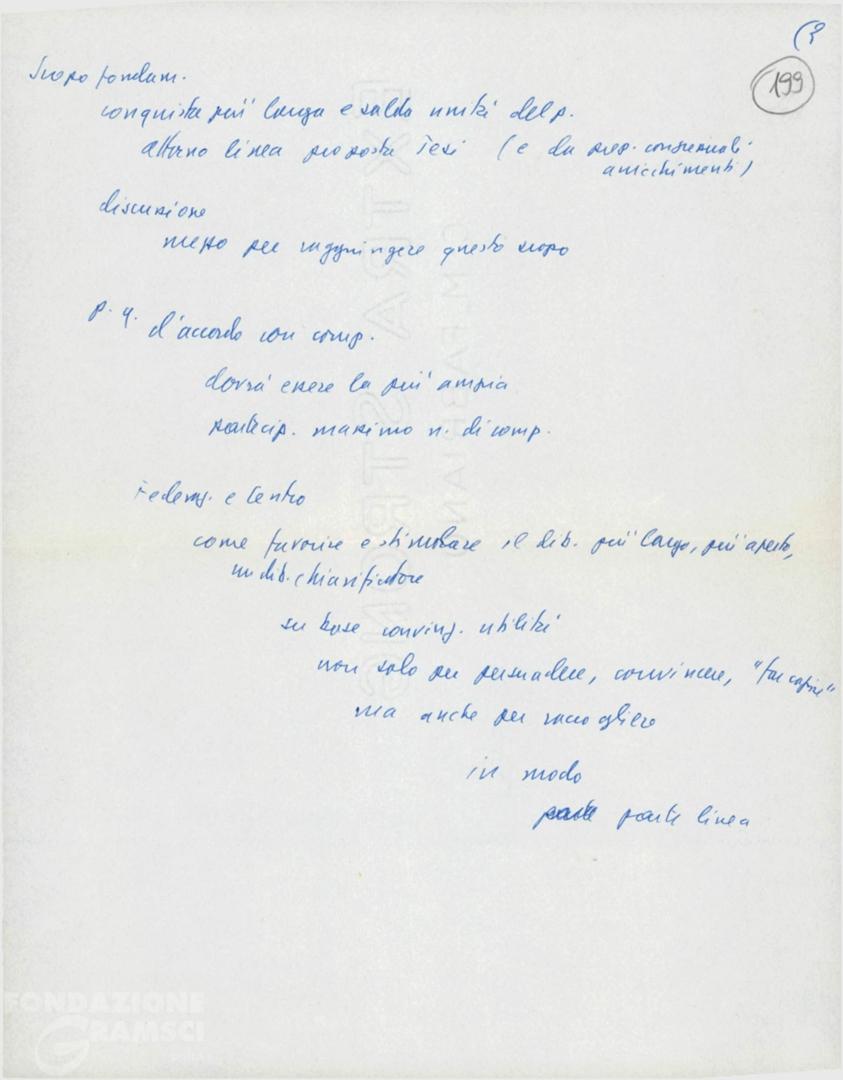 199
Scopo fondam.
conquista più larga e salda unità del p.
attorno linea proposta Tesi (e da prep. congressuali
arricchimenti)
discussione
mezzo per raggiungere questo scopo
p. q. d'accordo con comp.
dovrà essere la più ampia
partecip. massimo n. di comp.
Federaz. e Centro
come favorire e stimolare il dib. più largo, più aperto,
un dib. chiarificatore
su base convinz. utilità
non solo per persuadere, convincere, "far capire"
ma anche per raccogliere
in modo
parte linea
EXTRA STRONG
FABRIANO
FONDAZIONE
GRAMSCI